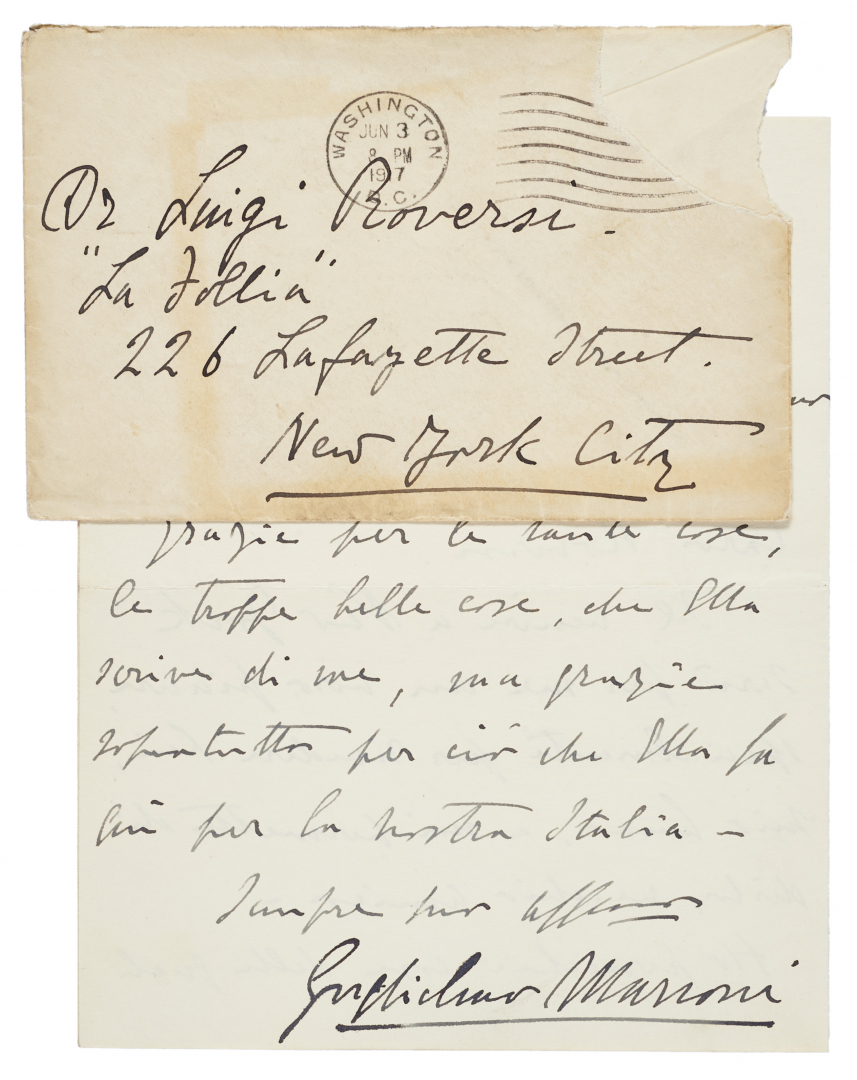 WASHINGTON
JUN 3
8 PM
1917
D.C.
Dr Luigi Roversi.
"La Follia"
226 Lafayette Street.
New York City
grazie per le tante cose,
le troppe belle cose, che Ella
scrive di me, ma grazie
sopratutto per ciò che Ella fa
qui per la nostra Italia –
Sempre suo affemo
Guglielmo Marconi